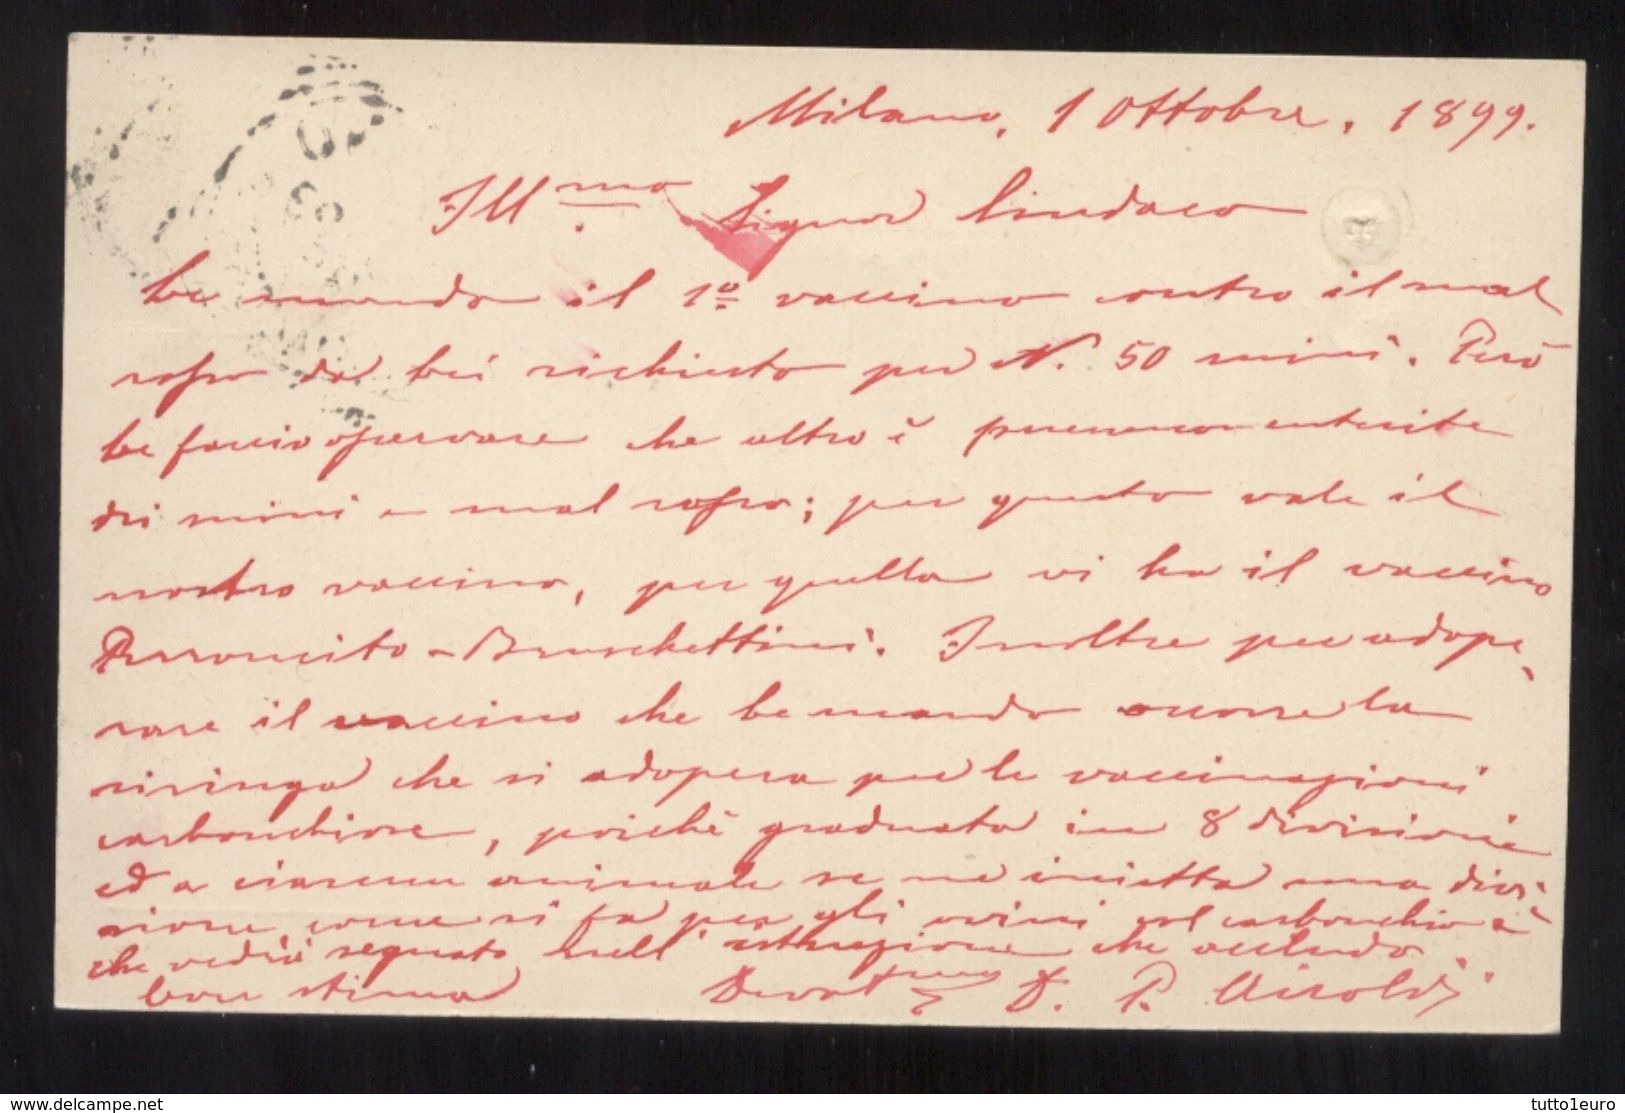 Milano, 1 Ottobre, 1899.
Ill.mo Signor Sindaco
Le mando il 1º vaccino contro il mal
rosso da Lei richiesto per N. 50 suini. Però
Le faccio osservare che altro è pneumoenterite
dei suini e mal rosso; per questo vale il
nostro vaccino, per quella vi ha il vaccino
Perroncito-Bruschettini. Inoltre per adope-
rare il vaccino che Le mando occorre la
siringa che si adopera per le vaccinazioni
carbonchiose, poichè graduata in 8 divisioni
ed a ciascun animale se ne inietta una divi-
sione, come si fa per gli ovini col carbonchio e
che vedrà segnato nell'istruzione che accludo.
Con stima Devot D. P. Airoldi
www.delcampe.net
tutto1euro